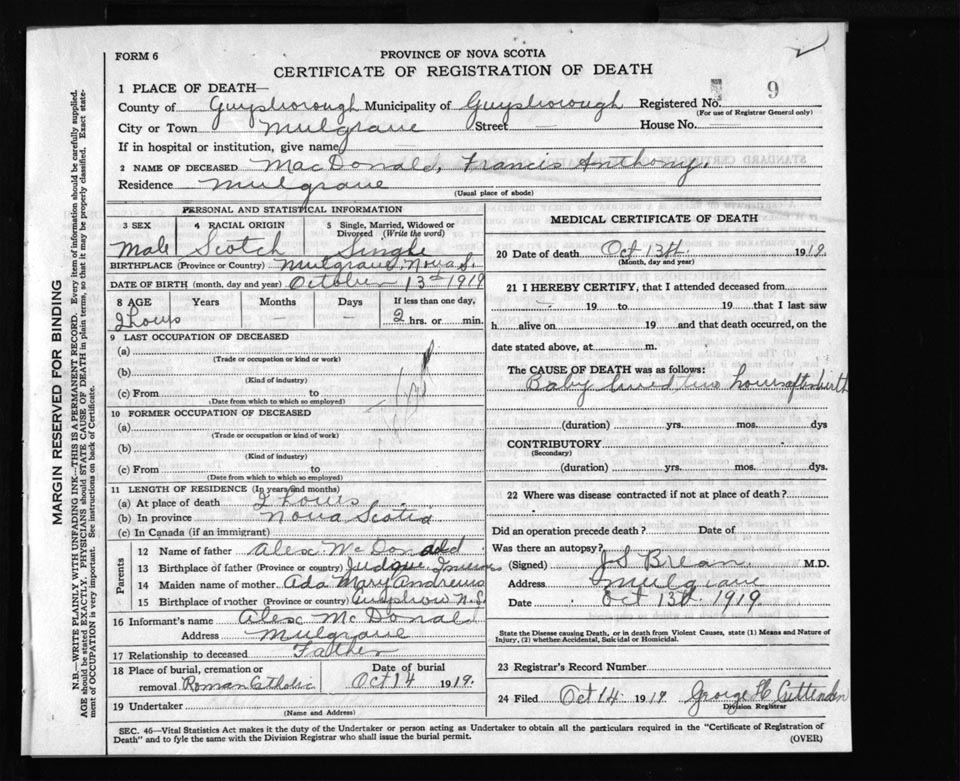 FORM 6
PROVINCE OF NOVA SCOTIA
CERTIFICATE OF REGISTRATION OF DEATH
1 PLACE OF DEATH—
County of Guysborough Municipality of Guysborough Registered No. 9
(For use of Registrar General only)
City or Town Mulgrave Street — House No.
If in hospital or institution, give name —
2 NAME OF DECEASED MacDonald, Francis Anthony.
Residence Mulgrave
(Usual place of abode)
PERSONAL AND STATISTICAL INFORMATION
3 SEX 4 RACIAL ORIGIN 5 Single, Married, Widowed or Divorced (Write the word)
Male Scotch Single
BIRTHPLACE (Province or Country) Mulgrave, Nova S.
DATE OF BIRTH (month, day and year) October 13rd 1919
8 AGE Years Months Days If less than one day,
2 hours — — 2 hrs. or min.
9 LAST OCCUPATION OF DECEASED
(a)
(Trade or occupation or kind or work)
(b)
(Kind of industry)
(c) From to
(Date from which to which so employed)
10 FORMER OCCUPATION OF DECEASED
(a)
(Trade or occupation or kind of work)
(b)
(Kind of industry)
(c) From to
(Date from which to which so employed)
11 LENGTH OF RESIDENCE (In years and months)
(a) At place of death 2 hours
(b) In province Nova Scotia
(c) In Canada (if an immigrant)
Parents
12 Name of father Alex McDonald
13 Birthplace of father (Province or country) Judque
14 Maiden name of mother Ada Mary Andrews
15 Birthplace of mother (Province or country) N.S.
16 Informant's name Alex McDonald
Address Mulgrave
17 Relationship to deceased Father
18 Place of burial, cremation or removal Roman Catholic Date of burial Oct 14 1919.
19 Undertaker
(Name and Address)
MEDICAL CERTIFICATE OF DEATH
20 Date of death Oct 13th 1919.
(Month, day and year)
21 I HEREBY CERTIFY, that I attended deceased from
19 to 19 that I last saw
h alive on 19 and that death occurred, on the
date stated above, at m.
The CAUSE OF DEATH was as follows:
Baby lived two hours after birth
(duration) yrs. mos. dys
CONTRIBUTORY
(Secondary)
(duration) yrs. mos. dys.
22 Where was disease contracted if not at place of death?
Did an operation precede death? Date of
Was there an autopsy?
(Signed) J S Brean M.D.
Address Mulgrave
Date Oct 13th 1919.
State the Disease causing Death, or in death from Violent Causes, state (1) Means and Nature of
Injury, (2) whether Accidental, Suicidal or Homicidal.
23 Registrar's Record Number
24 Filed Oct 14 1919 George H Cuttenden
Division Registrar
SEC. 46—Vital Statistics Act makes it the duty of the Undertaker or person acting as Undertaker to obtain all the particulars required in the "Certificate of Registration of
Death" and to fyle the same with the Division Registrar who shall issue the burial permit.
(OVER)
MARGIN RESERVED FOR BINDING
N.B.—WRITE PLAINLY WITH UNFADING INK—THIS IS A PERMANENT RECORD. Every item of information should be carefully supplied.
AGE should be stated EXACTLY. PHYSICIANS should STATE CAUSE OF DEATH in plain terms, so that it may be properly classified. Exact state-
ment of OCCUPATION is very important. See instructions on back of Certificate.